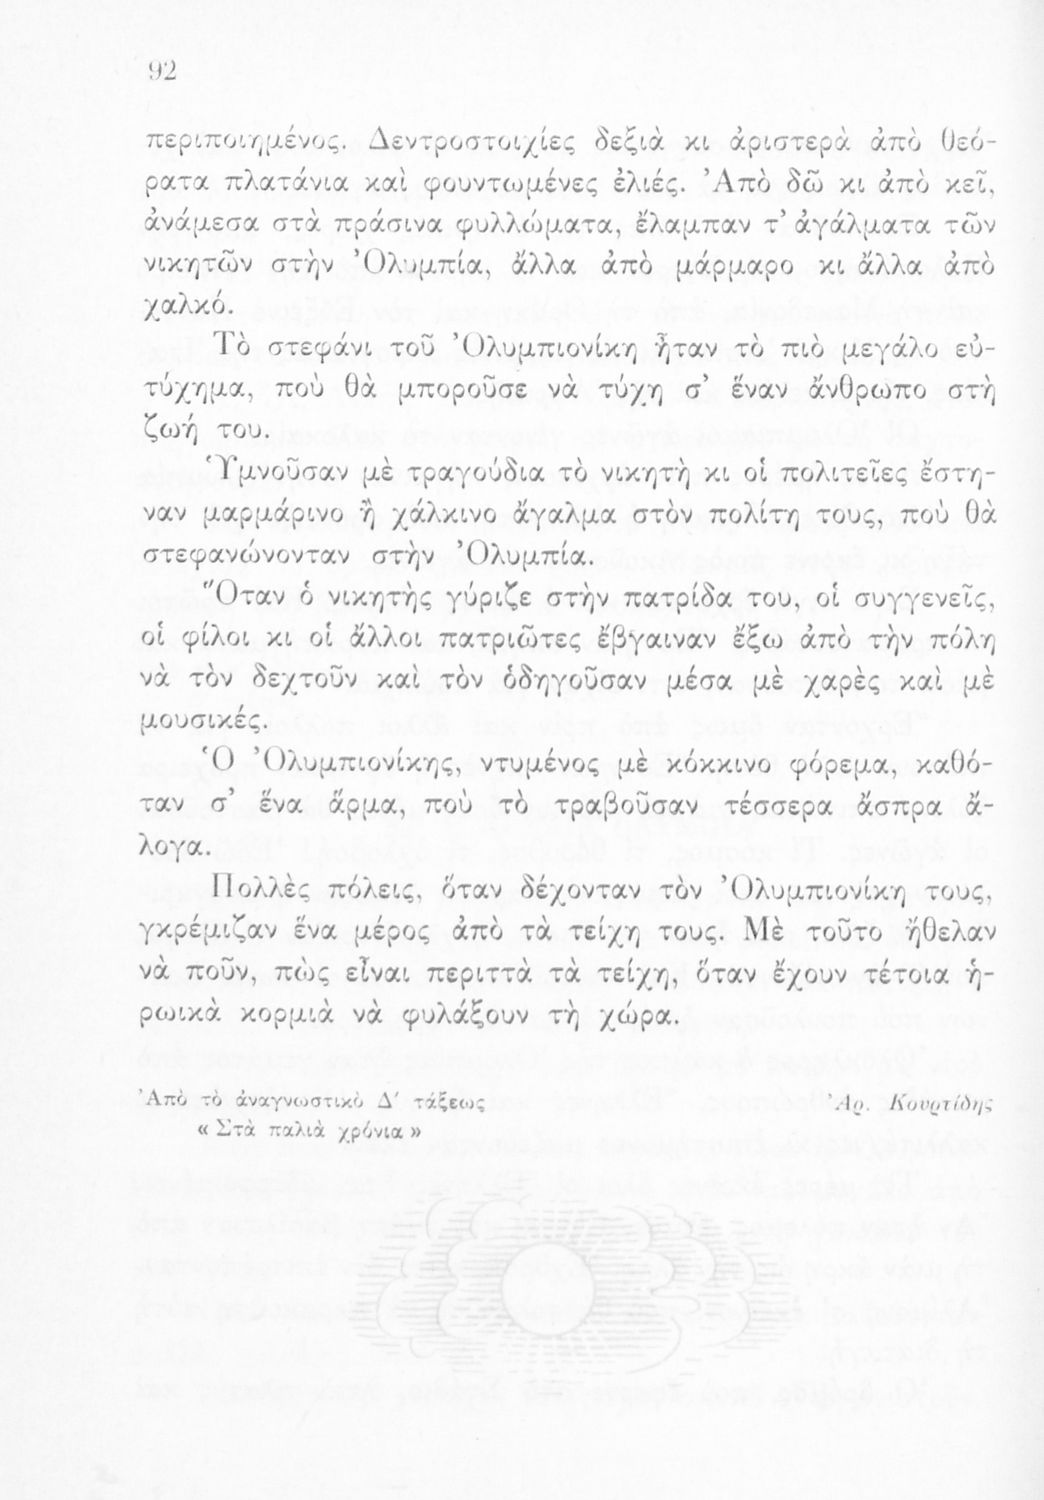 92
περιποιημένος. Δεντροστοιχίες δεξιὰ κι ἀριστερὰ ἀπὸ θεό-
ρατα πλατάνια καὶ φουντωμένες ἐλιές. Ἀπὸ δῶ κι ἀπὸ κεῖ,
ἀνάμεσα στὰ πράσινα φυλλώματα, ἔλαμπαν τ’ ἀγάλματα τῶν
νικητῶν στὴν Ὀλυμπία, ἄλλα ἀπὸ μάρμαρο κι ἄλλα ἀπὸ
χαλκό.
Τὸ στεφάνι τοῦ Ὀλυμπιονίκη ἦταν τὸ πιὸ μεγάλο εὐ-
τύχημα, ποὺ θὰ μποροῦσε νὰ τύχη σ’ ἕναν ἄνθρωπο στὴ
ζωή του.
Ὑμνοῦσαν μὲ τραγούδια τὸ νικητὴ κι οἱ πολιτεῖες ἔστη-
ναν μαρμάρινο ἢ χάλκινο ἄγαλμα στὸν πολίτη τους, ποὺ θὰ
στεφανώνονταν στὴν Ὀλυμπία.
Ὅταν ὁ νικητὴς γύριζε στὴν πατρίδα του, οἱ συγγενεῖς,
οἱ φίλοι κι οἱ ἄλλοι πατριῶτες ἔβγαιναν ἔξω ἀπὸ τὴν πόλη
νὰ τὸν δεχτοῦν καὶ τὸν ὁδηγοῦσαν μέσα μὲ χαρὲς καὶ μὲ
μουσικές.
Ὁ Ὀλυμπιονίκης, ντυμένος μὲ κόκκινο φόρεμα, καθό-
ταν σ’ ἕνα ἅρμα, ποὺ τὸ τραβοῦσαν τέσσερα ἄσπρα ἄ-
λογα.
Πολλὲς πόλεις, ὅταν δέχονταν τὸν Ὀλυμπιονίκη τους,
γκρέμιζαν ἕνα μέρος ἀπὸ τὰ τείχη τους. Μὲ τοῦτο ἤθελαν
νὰ ποῦν, πὼς εἶναι περιττὰ τὰ τείχη, ὅταν ἔχουν τέτοια ἡ-
ρωικὰ κορμιὰ νὰ φυλάξουν τὴ χώρα.
Ἀπὸ τὸ ἀναγνωστικὸ Δ′ τάξεως Ἀρ. Κουρτίδης
« Στὰ παλιὰ χρόνια »